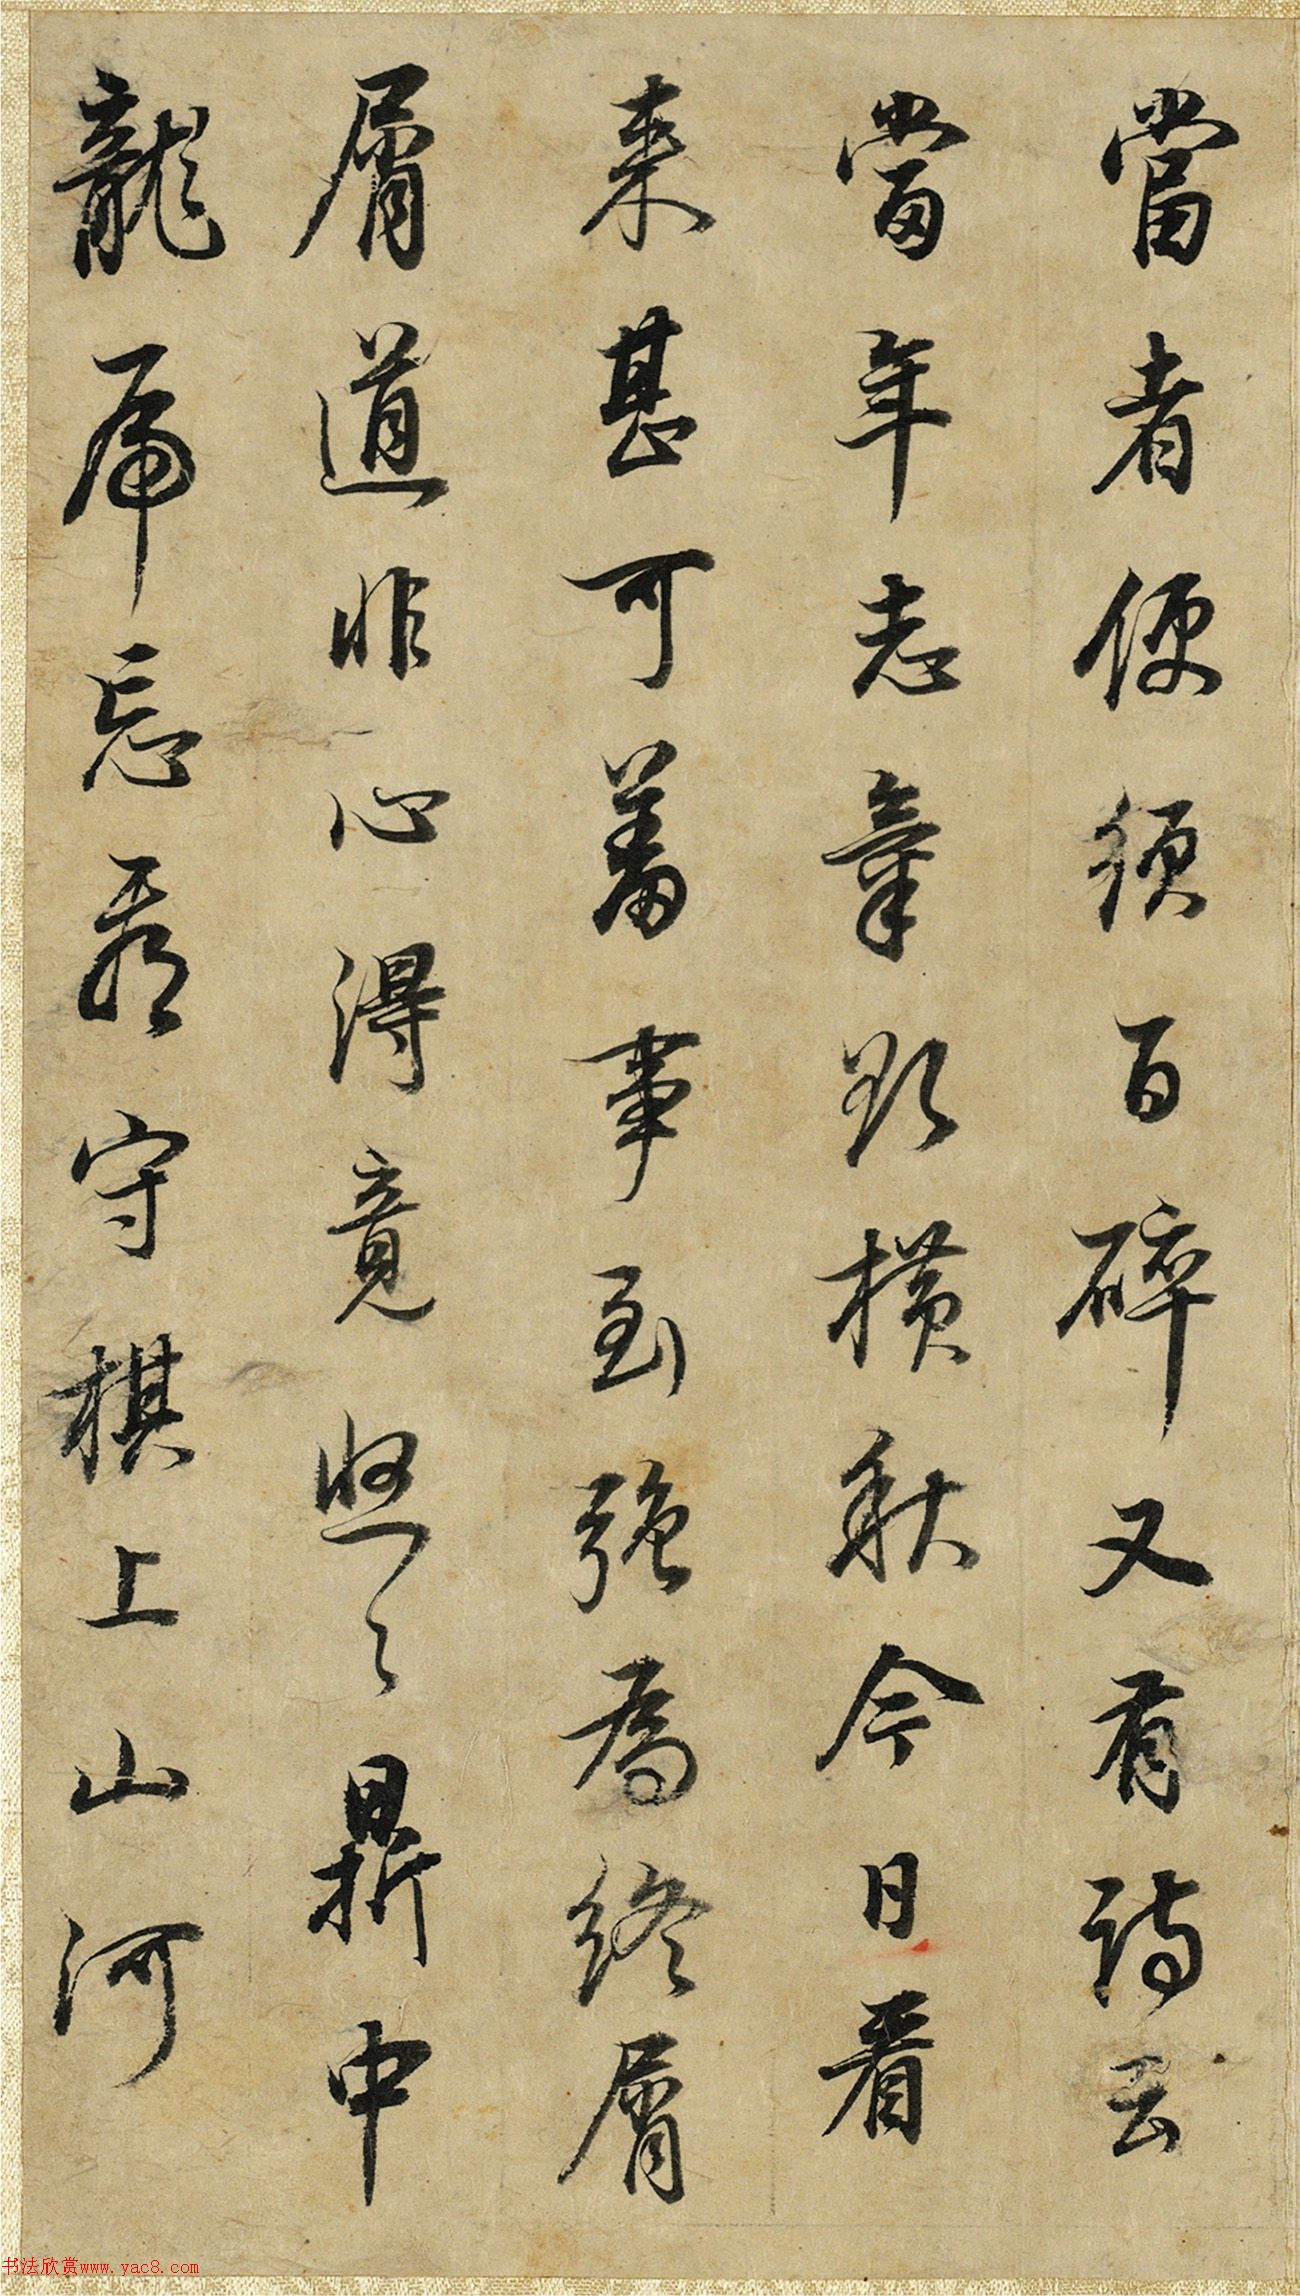 當者便須百碎又有詩云
當年志氣欲橫秋今日看
来甚可羞事到強為終屑
屑道非心得竟悠々鼎中
龍虎忘看守棋上山河
书法欣赏www.yac8.com